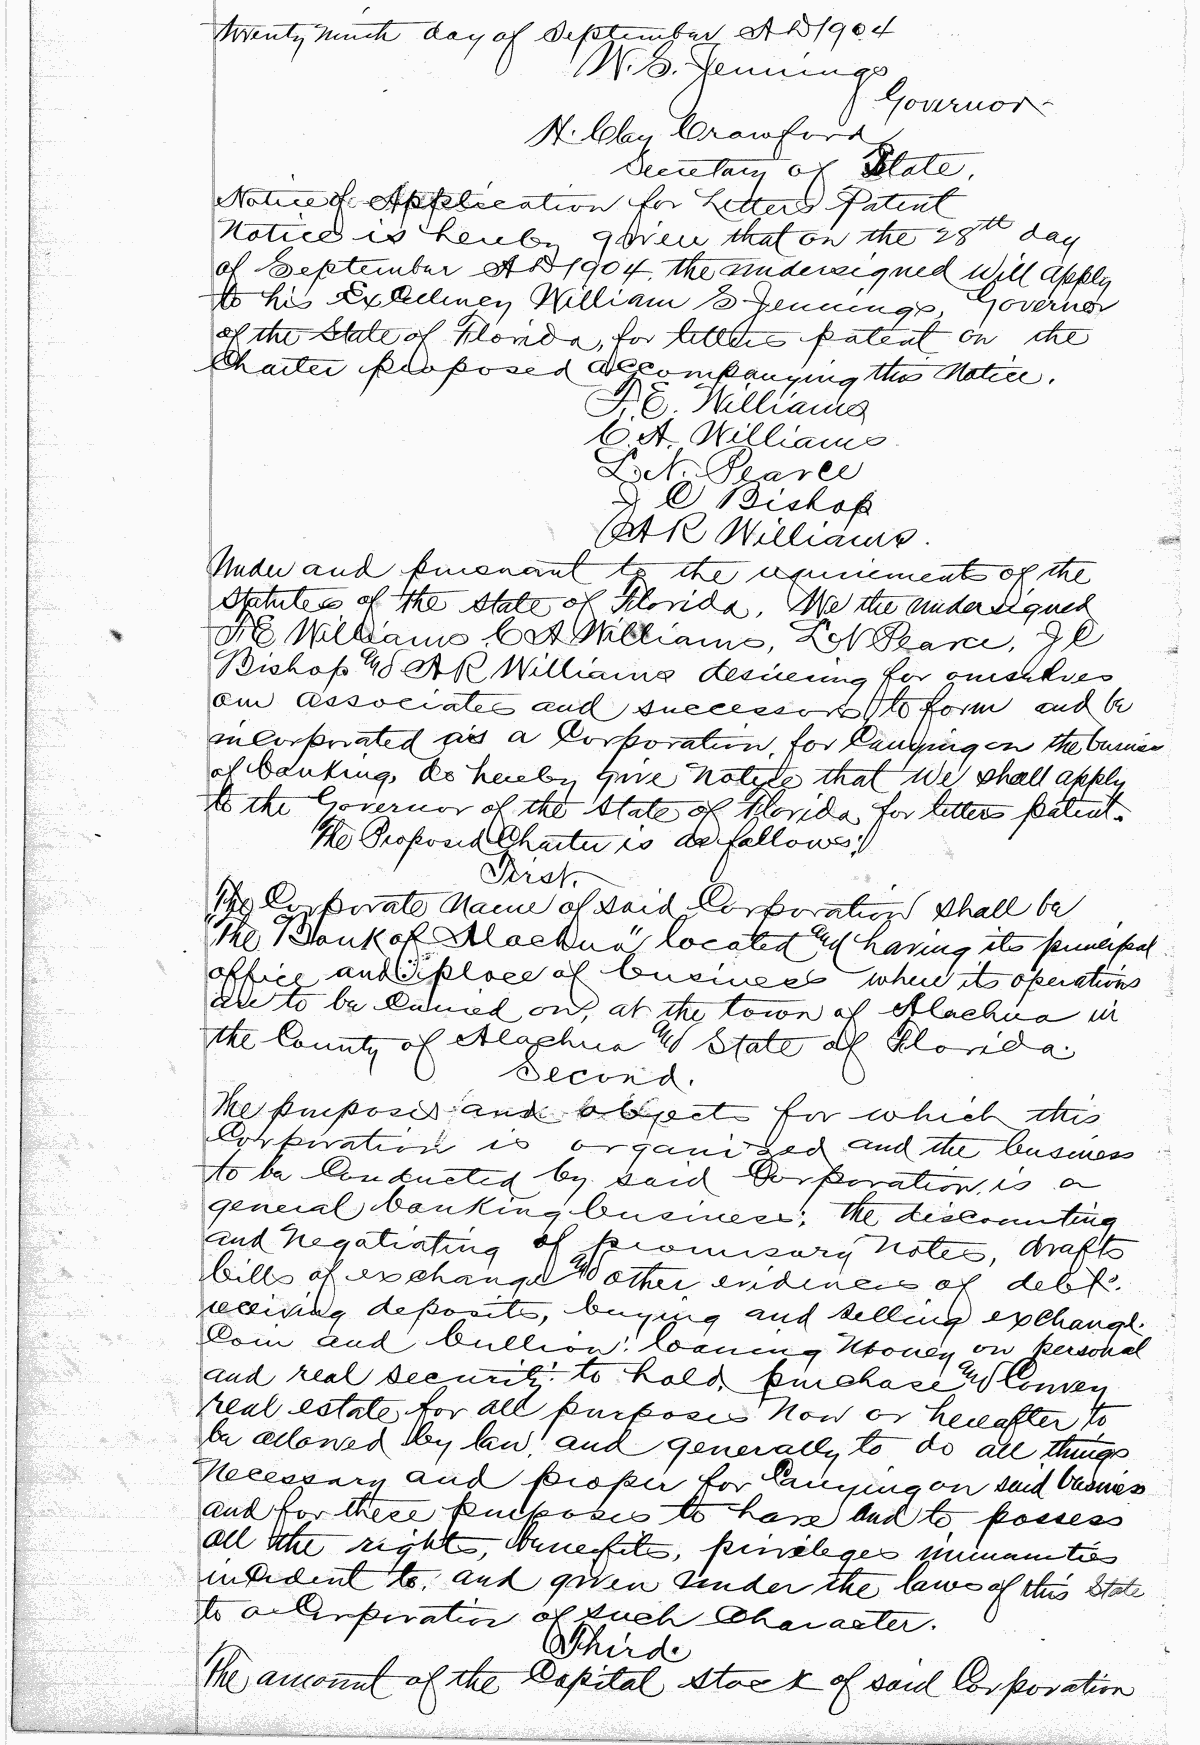 twenty ninth day of September A D 1904
W. S. Jennings
Governor
H. Clay Crawford
Secretary of State.
Notice of Application for Letters Patent
Notice is hereby given that on the 28th day
of September A D 1904, the undersigned will apply
to his Excellency William S Jennings, Governor
of the State of Florida, for letters patent on the
Charter proposed accompanying this Notice.
F. E. Williams
C. A. Williams
L. N. Pearce
J C Bishop
A R Williams.
Under and pursuant to the requirements of the
statutes of the state of Florida. We the undersigned
F E Williams, C A Williams, L N Pearce, J C
Bishop and A R Williams desiering for ourselves
our associates and successors, to form and be
incorporated as a Corporation, for Carrying on the business
of banking, do hereby give notice that we shall apply
to the Governor of the State of Florida for letters patent.
The Proposed Charter is as follows:
First.
The Corporate Name of said Corporation shall be
"The Bank of Alachua" located and having its principal
office and place of business where its operations
are to be carried on, at the town of Alachua in
the County of Alachua and State of Florida.
Second.
The purposes and objects for which this
Corporation is organized and the business
to be Conducted by said Corporation, is a
general banking business; the discounting
and Negotiating of promisory Notes, drafts
bills of exchange and other evidences of debt.
receiving deposits, buying and selling exchange.
Coin and bullion: loaning Money on personal
and real security: to hold, purchase and Convey
real estate for all purposes Now or hereafter to
be allowed by law, and generally to do all things
Necessary and proper for Carrying on said business
and for these purposes to have and to possess
all the rights, benefits, privileges immunities
incident to, and given under the laws of this State
to a Corporation of such Character.
Third.
The amount of the Capital stock of said Corporation